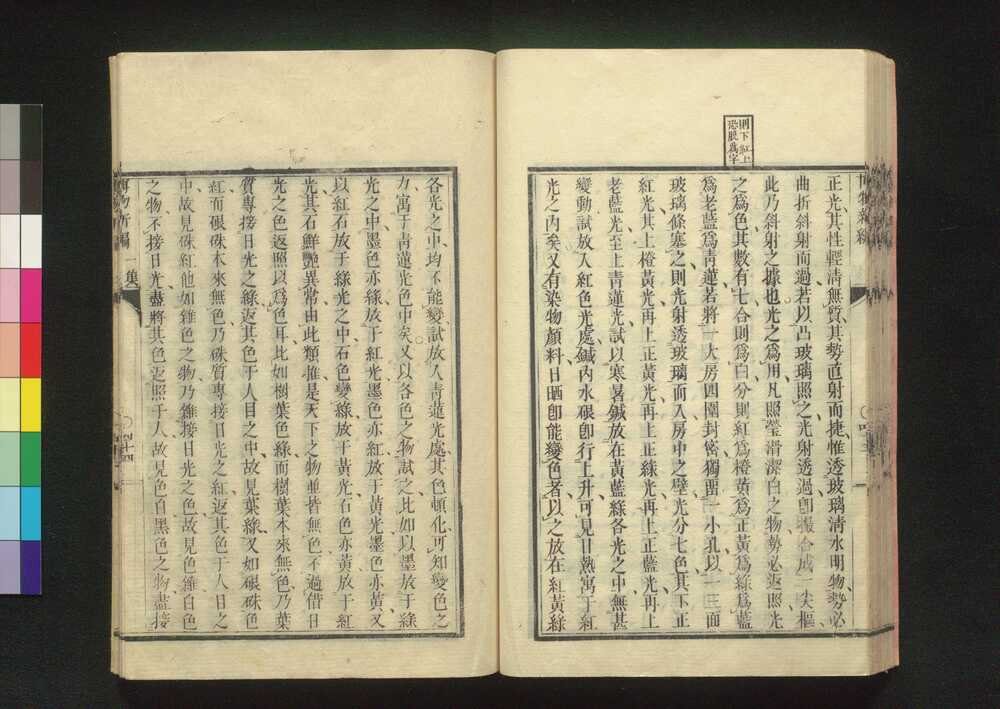 則下紅上
恐脫爲字
正光其性輕淸無質其勢直射而捷惟透玻璃淸水明物勢必
曲折斜射而過若以凸玻璃照之光射透過卽撮合成一尖樞
此乃斜射之據也光之爲用凡照瑩滑潔白之物勢必返照光
之爲色其數有七合則爲白分則紅爲橙黃爲正黃爲綠爲藍
爲老藍爲靑蓮若將一大房四圍封密獨畱一小孔以一三面
玻璃條塞之則光射透玻璃而入房中之壁光分七色其下正
紅光其上橙黃光再上正黃光再上正綠光再上正藍光再上
老藍光至上靑蓮光試以寒暑鍼放在黃藍綠各光之中無甚
變動試放入紅色光處鍼內水銀卽行上升可見日熱寓于紅
光之內矣又有染物顏料日晒卽能變色者以之放在紅黃綠
各光之中均不能變試放入靑蓮光處其色頓化可知變色之
力寓于靑蓮光色中矣又以各色之物試之比如以墨放于綠
光之中墨色亦綠放于紅光墨色亦紅放于黃光墨色亦黃又
以紅石放于綠光之中石色變綠放于黃光石色亦黃放于紅
光其石鮮艷異常由此類推是天下之物並皆無色不過借日
光之色返照以爲色耳比如樹葉色綠而樹葉本來無色乃葉
質專接日光之綠返其色于人目之中故見葉綠又如銀硃色
紅而銀硃本來無色乃硃質專接日光之紅返其色于人目之
中故見硃紅他如雜色之物乃雜接日光之色故見色雜白色
之物不接日光盡將其色返照于人故見色白黑色之物盡接
博物新編
一集
四十四